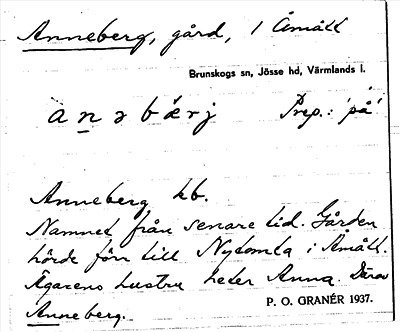 Anneberg, gård, 1 Åmått
Brunskogs sn, Jösse hd, Värmlands l.
a n ə b æ r j Prep.: på
Anneberg kb.
Namnet från senare tid. Gården
hörde förr till Nytomta i Åmått.
Ägarens hustru heter Anna. Därav
Anneberg.
P. O. GRANÉR 1937.